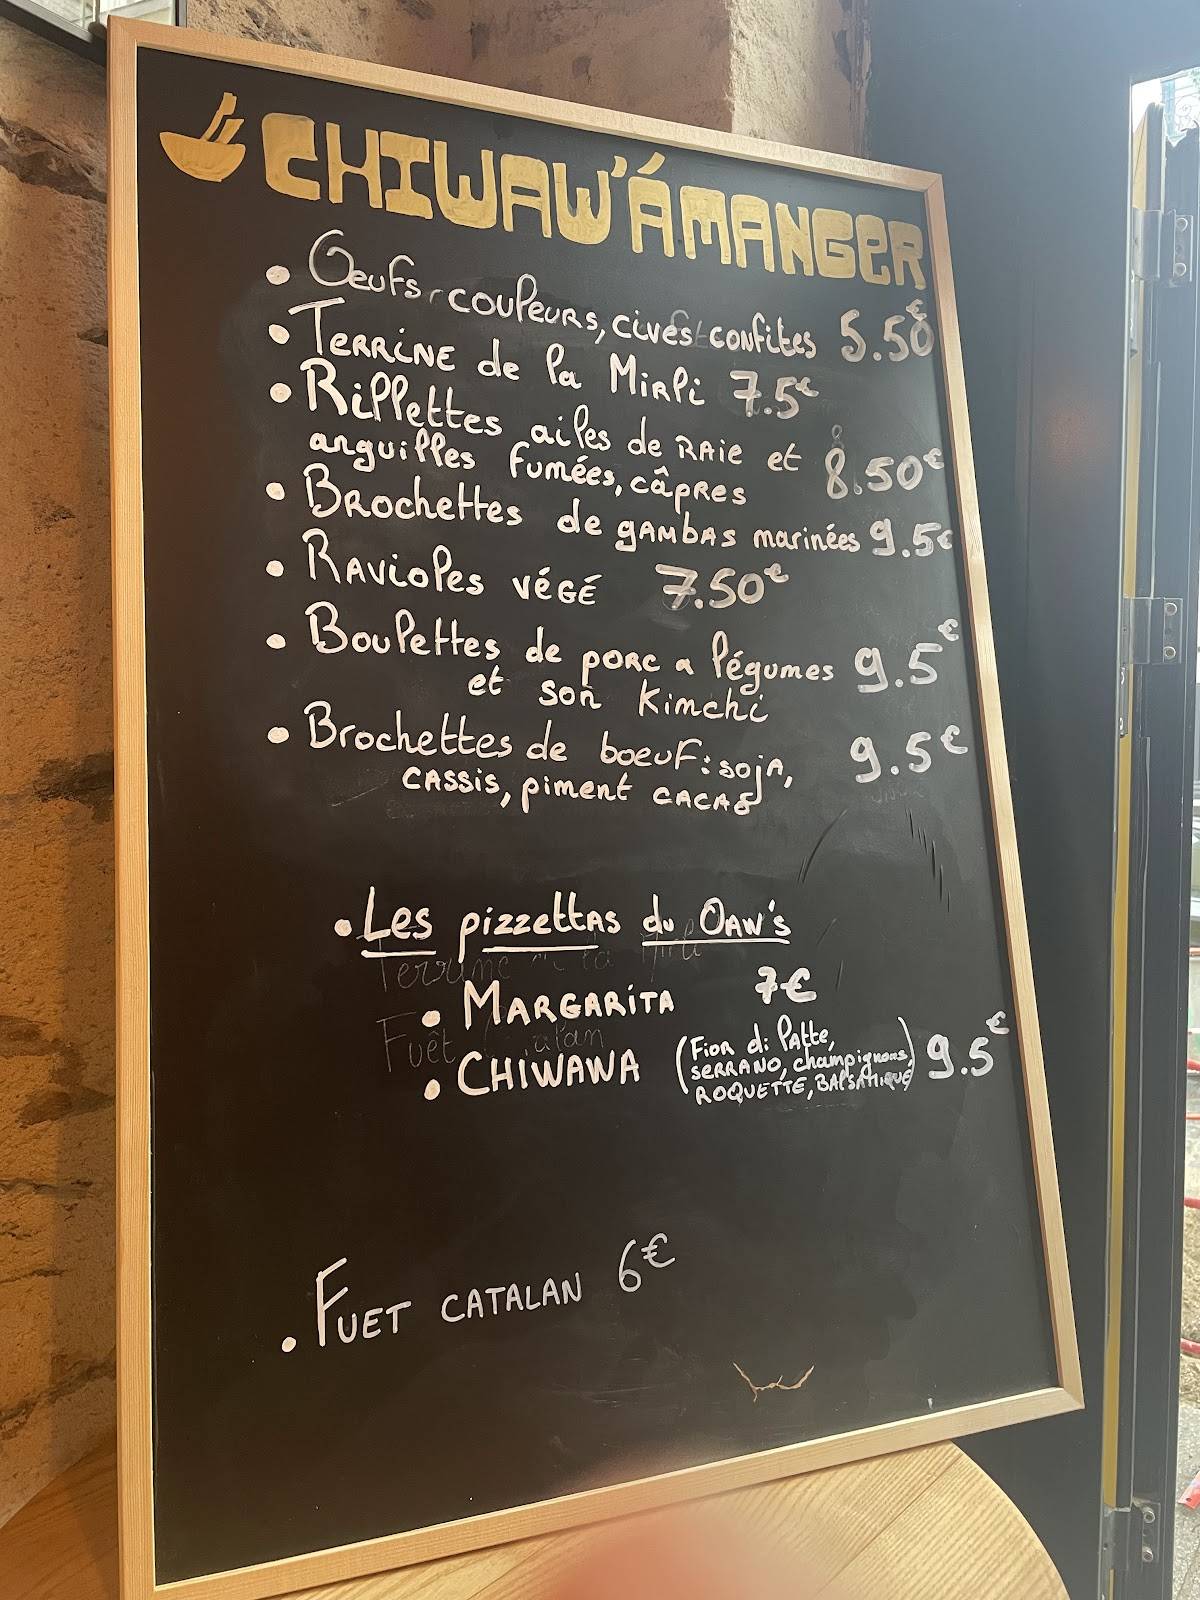 CHIWAW'ÁMANGER
• Oeufs, couleurs, cives confites 5.50€
• Terrine de la Mirli 7.5€
• Rillettes ailes de raie et
anguilles fumées, câpres 8.50€
• Brochettes de gambas marinées 9.5€
• Ravioles végé 7.50€
• Boulettes de porc a légumes 9.5€
et son kimchi
• Brochettes de boeuf: soja, 9.5€
cassis, piment
• Les pizzettas du Oaw's
Terrine de la Mirli
• MARGARITA 7€
Fuêt Catalan
• CHIWAWA (Fior di latte,
serrano, champignons, 9.5€
roquette, balsamique)
• Fuet catalan 6€